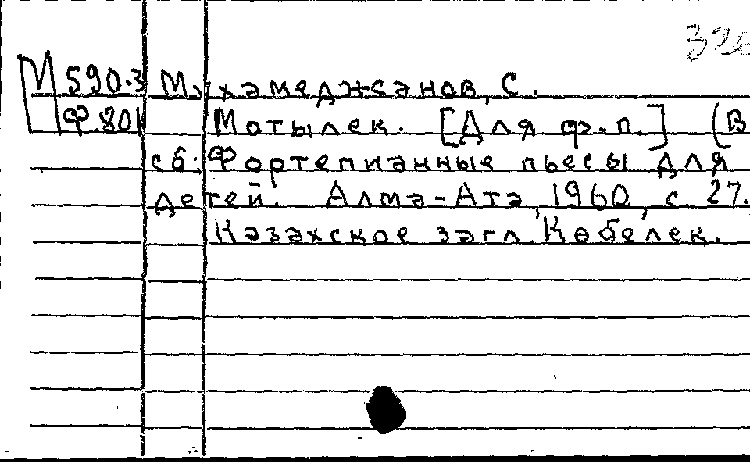 326
М 590.3 Мухамеджанов, С.
Ф.801 Мотылек. [Для ф.п.] (В
сб. Фортепианные пьесы для
детей. Алма-Ата, 1960, с 27.
Казахское загл. Көбелек.